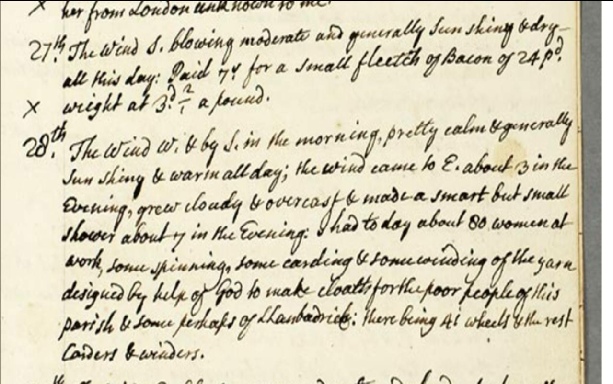 × her from London unknown to me.
27th. The Wind S. blowing moderate and generally Sun shiny & dry
all this day: Paid 7s for a small fleetch of Bacon of 24 pd.
× weight at 3d 1/2 a pound.
28th. The Wind W. & by S. in the morning, pretty calm & generally
Sun shiny & warm all day; the wind came to E. about 3 in the
Evening, grew cloudy & overcast & made a smart but small
shower about 7 in the Evening: I had to day about 80 women at
work, some spinning, some carding & some winding of the yarn
designed by help of God to make cloaths for the poor people of this
parish & some perhaps of Llanbadrick: there being 41 wheels & the rest
Carders & winders.